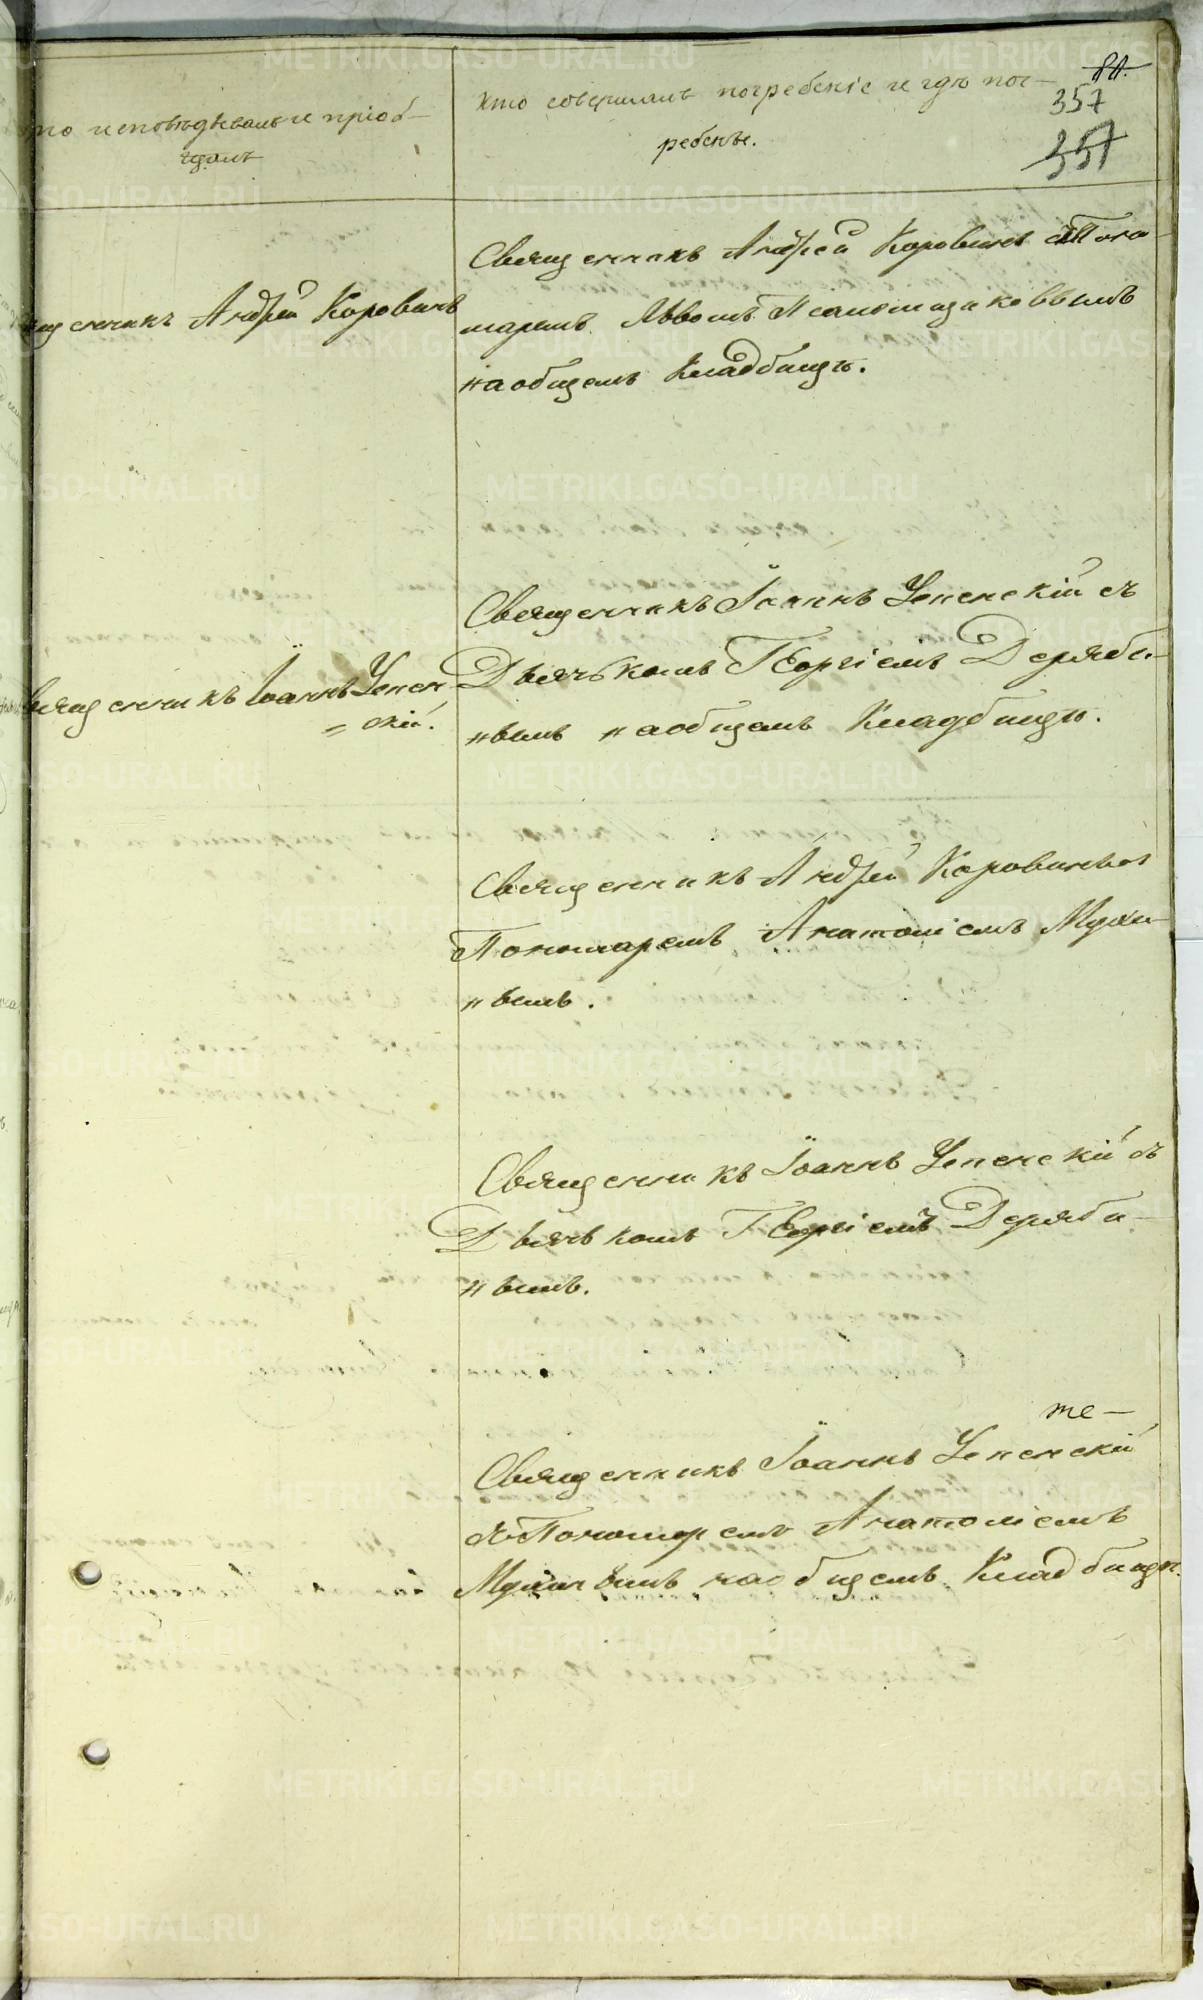 кто исповѣдывалъ и пріоб-
щалъ
Кто совершалъ погребеніе и гдѣ пог-
ребенъ.
84.
357
357
Священникъ Андрей Коровинъ
Священникъ Андрей Коровинъ съ Поно-
маремъ Львомъ
на общемъ Кладбищѣ.
Священникъ Іоаннъ Успен
= скій.
Священникъ Іоаннъ Успенскій съ
Дьячькомъ Георгіемъ Деряби-
нымъ на общемъ Кладбищѣ.
Священникъ Андрей Коровинъ съ
Пономаремъ Анатоліемъ Мухи-
нымъ.
Священникъ Іоаннъ Успенскій съ
Дьячькомъ Георгіемъ Деряби-
нымъ.
те-
Священникъ Іоаннъ Успенскій
съ Пономаремъ Анатоліемъ
Мухинымъ на общемъ Кладбищѣ.
METRIKI.GASO-URAL.RU